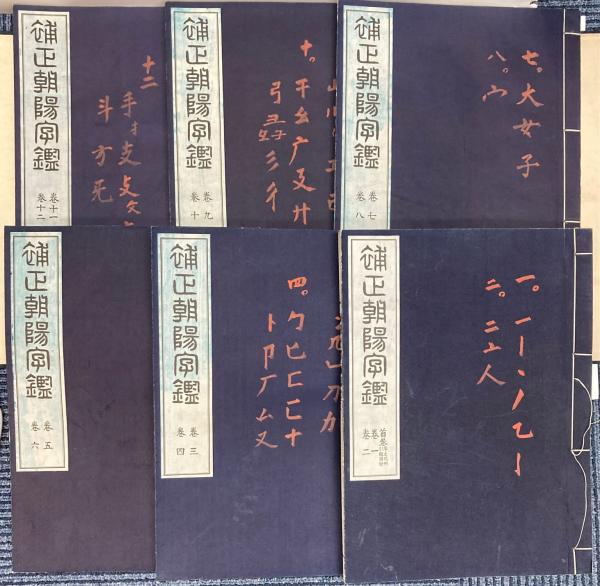 補正朝陽字鑑
卷七
卷八
七。大女子
八。宀
補正朝陽字鑑
卷九
卷十
十。干幺广廴廾
弓彐彡彳
補正朝陽字鑑
卷十一
卷十二
十二
手扌支攴文
斗方无
補正朝陽字鑑
首卷
卷一
卷二
一。一丨丶丿乙亅
二。二亠人
補正朝陽字鑑
卷三
卷四
四。勹匕匚匸十
卜卩厂厶又
補正朝陽字鑑
卷五
卷六